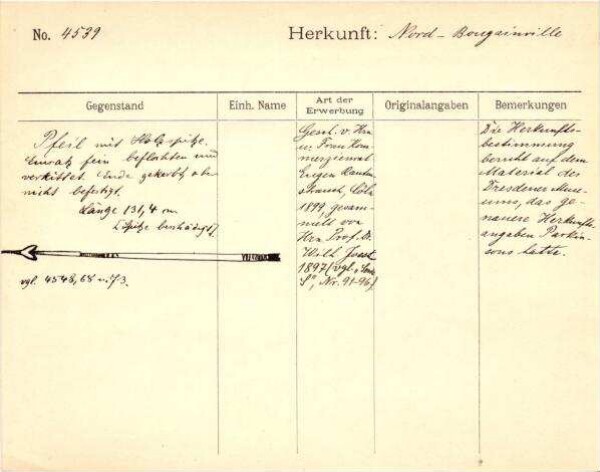 No. 4539
Herkunft: Nord-Bougainville
Gegenstand
Einh. Name
Art der Erwerbung
Originalangaben
Bemerkungen
Pfeil mit Holzspitze.
Einsatz fein beflochten und
verkittet. Ende gekerbt aber
nicht befestigt.
Länge 131,4 cm
[Spitze beschädigt]
vgl. 4548, 68 u. 73.
Gesch. v. Hrn
u. Frau Kom-
merzienrat
Eugen Rauten-
strauch, Cöln
1899, gesam-
melt von
Hrn Prof. Dr.
Wilh. Joest
1897 (vgl.
Nr. 91-96)
Die Herkunfts-
bestimmung
beruht auf dem
Material des
Dresdener Muse-
ums, das ge-
nauere Herkunfts-
angaben Parkin-
sons hatte.